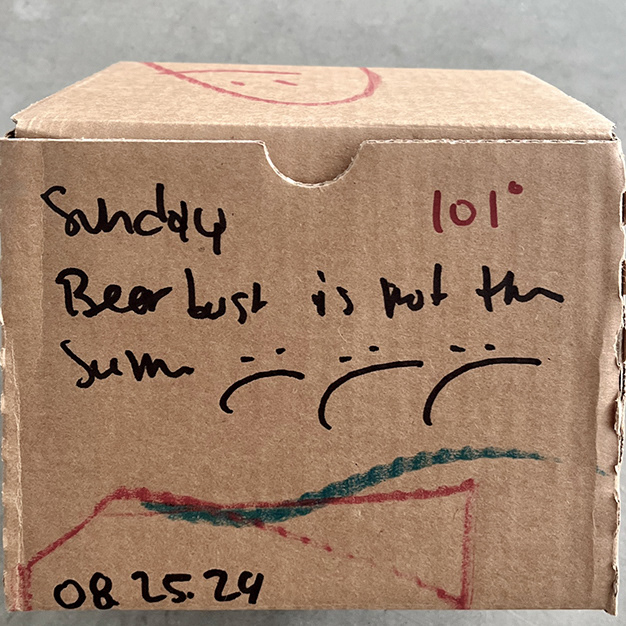 Sunday 101°
Beer bust is not the
Sum
08.25.24